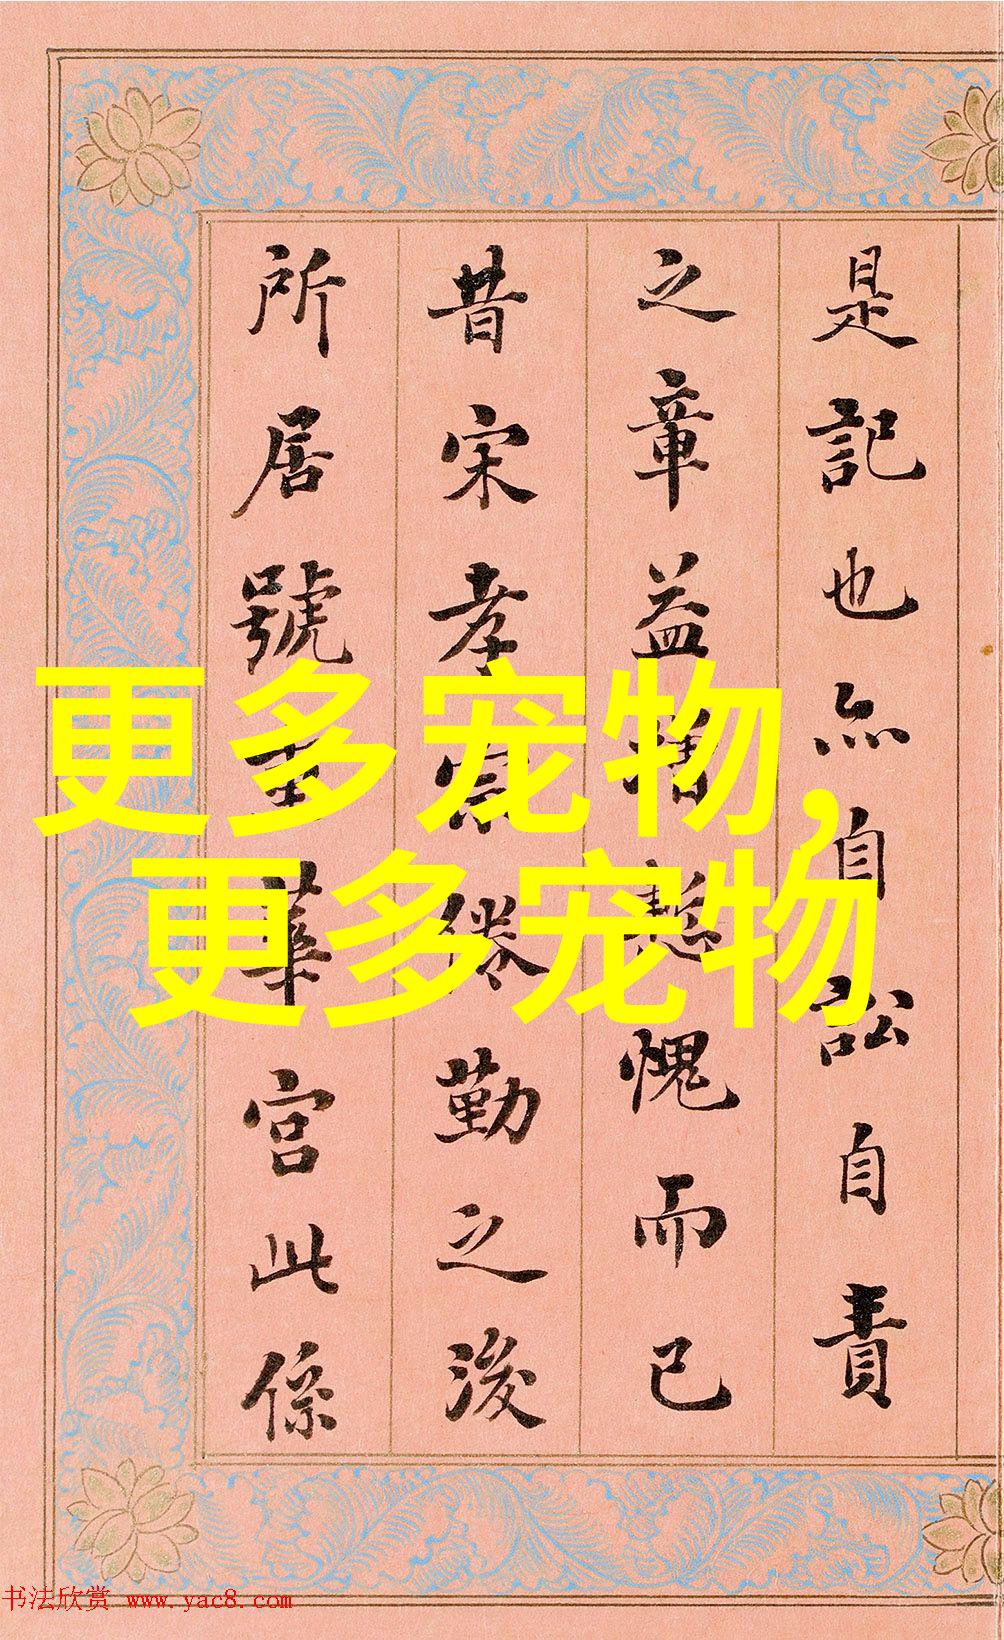 是記也亦自訟自責
之章益增慙愧而已
昔宋孝宗倦勤之後
所居號重華宮此係
更多宠物,
更多宠物
书法欣赏 www.yac8.com